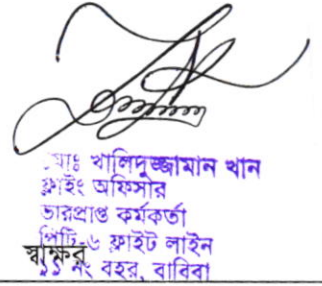 মোঃ খালিদুজ্জামান খান
ফ্লাইং অফিসার
ভারপ্রাপ্ত কর্মকর্তা
পিটি-৬ ফ্লাইট লাইন
স্বাক্ষর
১১ নং বহর, বাবিবা